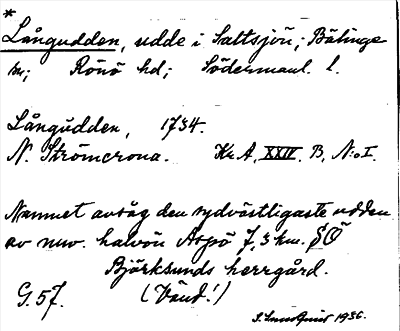 *
Långudden, udde i Saltsjön; Bälinge
sn; Rönö hd; Södermanl. l.
Långudden, 1734.
N. Strömcrona. Kr. A. XXIV. B, N:o I.
Namnet avsåg den sydvästligaste udden
av nuv. halvön Aspö 7,3 km. SÖ
Björksunds herrgård.
G. 57. (Vänd!)
1936.